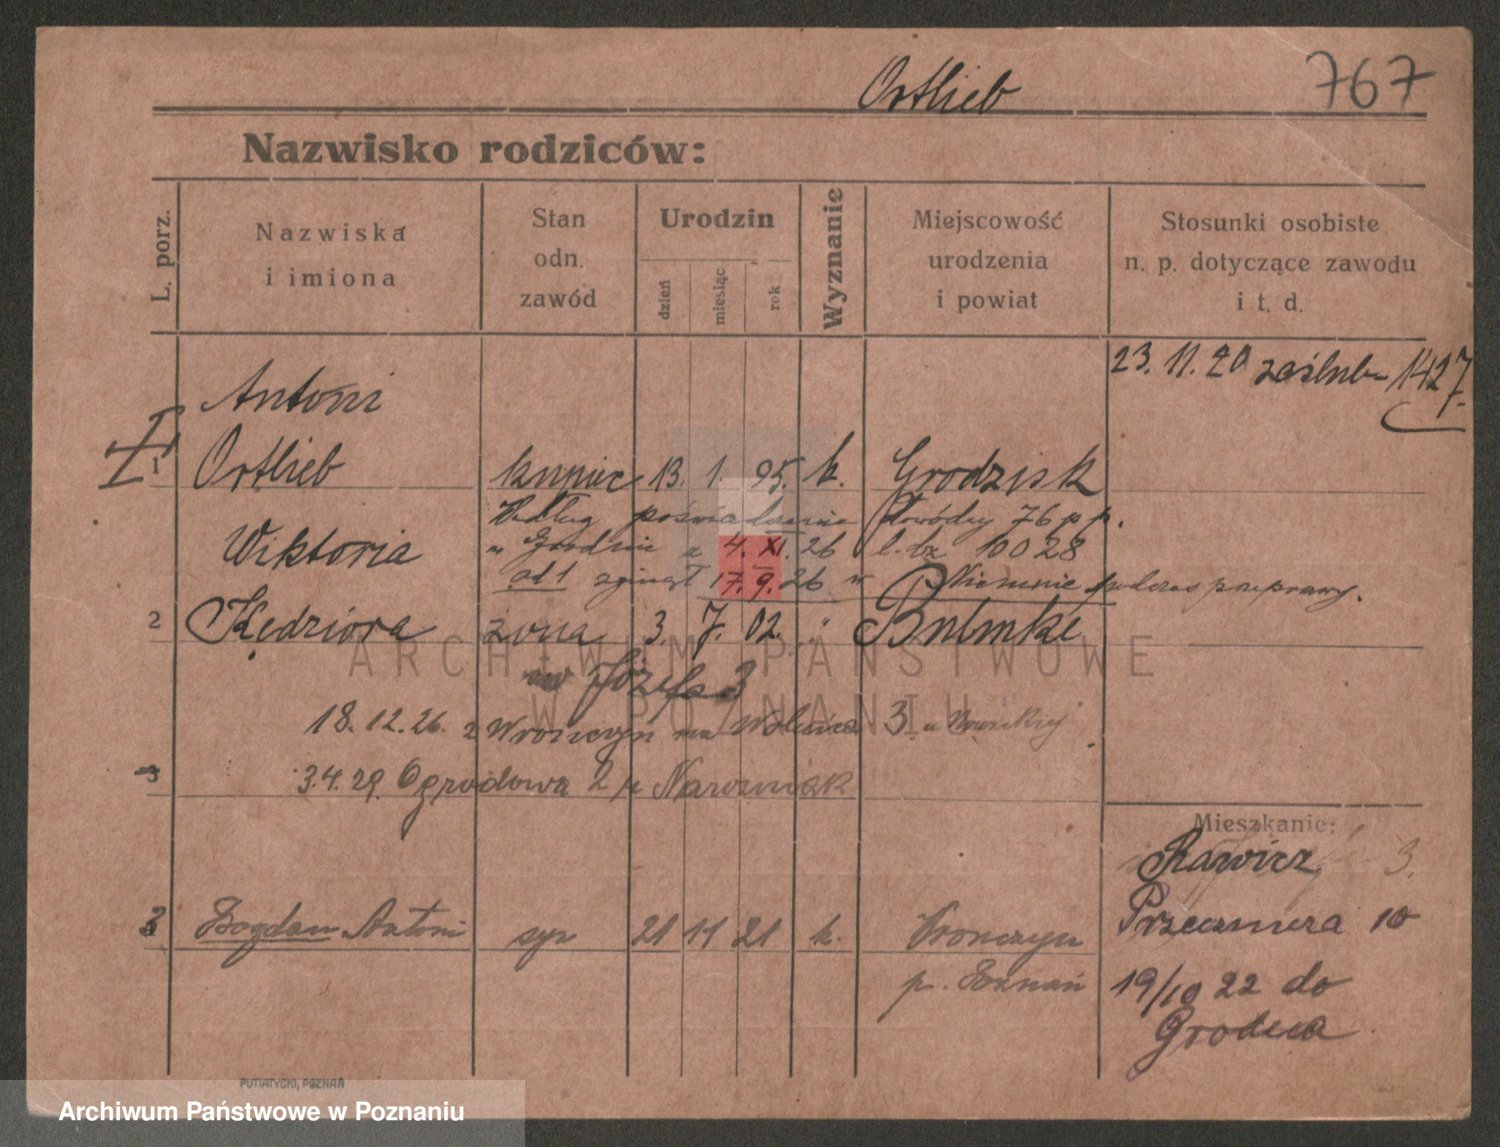 Ortlieb
767
Nazwisko rodziców:
L. porz.
Nazwiska
i imiona
Stan
odn.
zawód
Urodzin
dzień
miesiąc
rok
Wyznanie
Miejscowość
urodzenia
i powiat
Stosunki osobiste
n. p. dotyczące zawodu
i t. d.
23. 11. 20 zaślub. 1427.
Antoni
1 Ortlieb kupiec 13. 1. 95. k. Grodzisk
Według poświadczenia Dowódcy 76 p p.
w Grodnie z 4. XI. 26 l. bz. 10028
Wiktoria
ad 1 zginął 17. 9. 26 w Niemnie podczas przeprawy.
2 Kędziora żona 3. 7. 02. "
Józefa 3
18. 12. 26. z Wronczyn na 3. u Nowickiej
3
3.4.29. Ogrodowa 2 u
Mieszkanie:
Rawicz
3.
Przeczniera 10
3 Bogdan Antoni syn 21 11 21 k. Wronczyn
p. Poznań
19/10 22 do
Grodna
PUTIATYCKI, POZNAŃ
ARCHIWUM PAŃSTWOWE
W POZNANIU
Archiwum Państwowe w Poznaniu